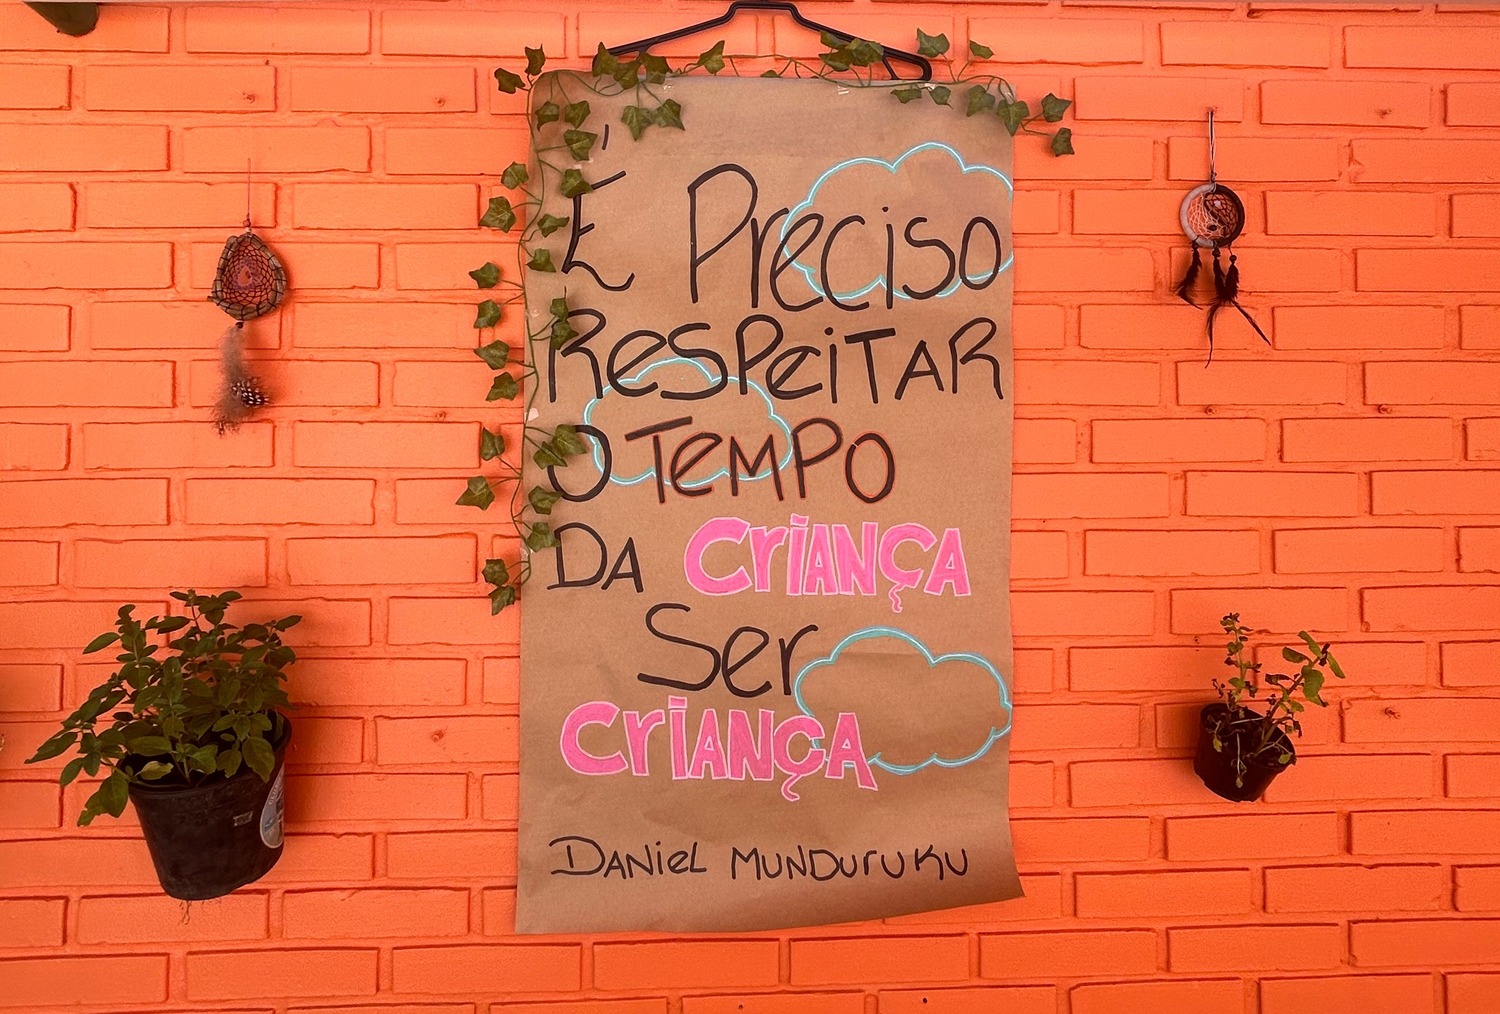 É Preciso
RespeitAR
O Tempo
DA CriANÇA
Ser
CriANÇA
DANieL MUNDUruKu